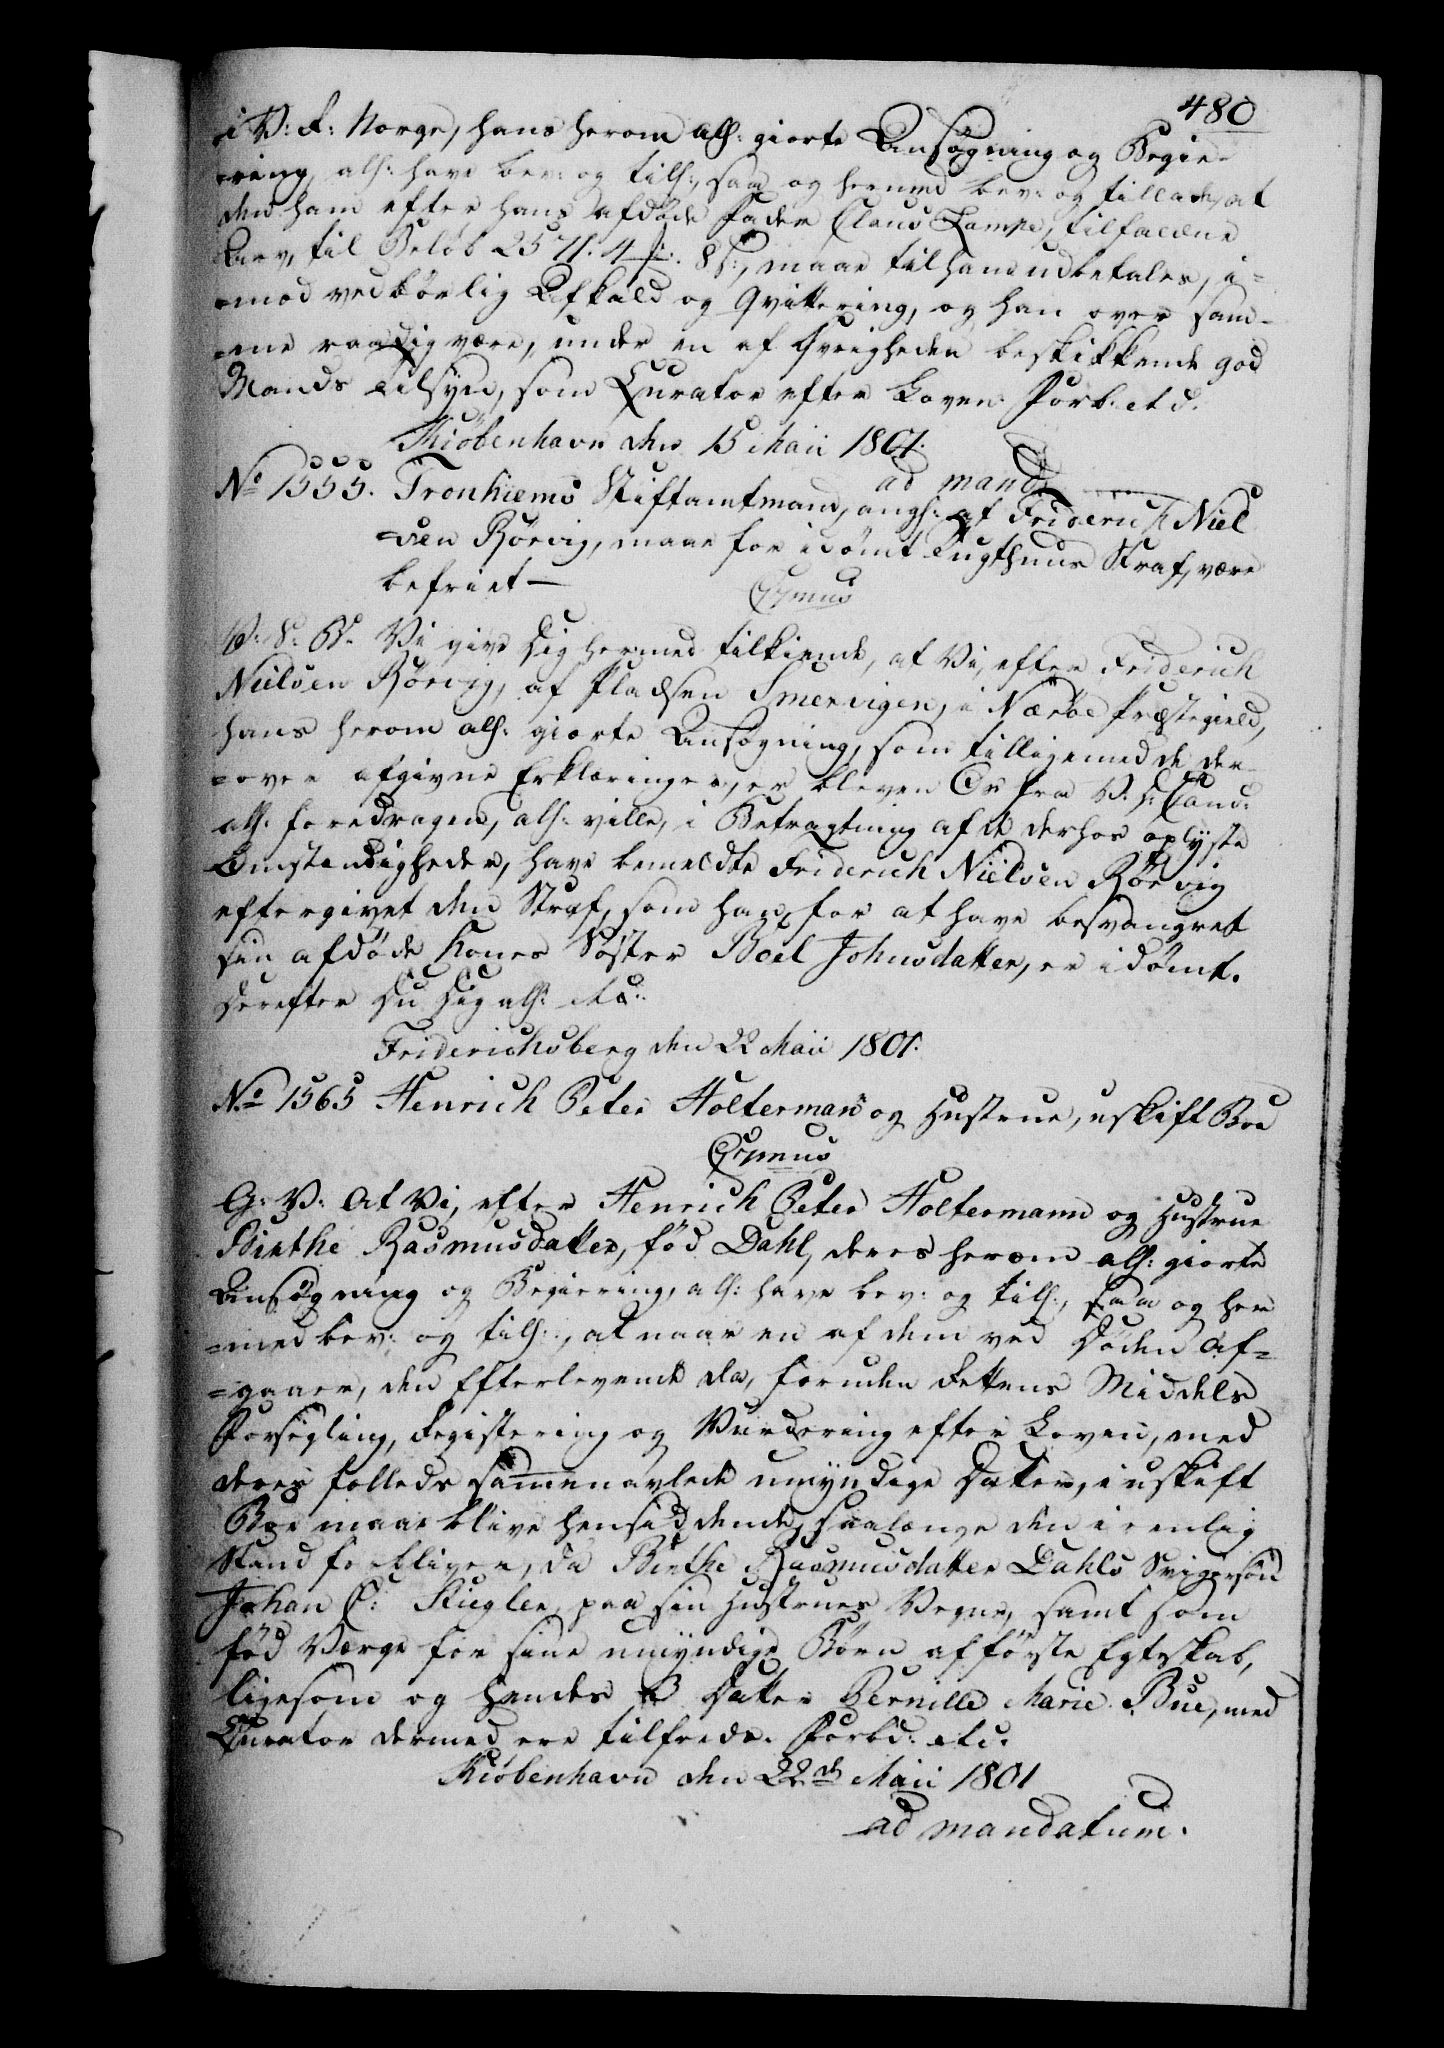 480
i V: R: Norge, hans herom allr: giorte Ansøgning og Begie-
-ring, allr: have bev: og till:, saa og hermed bev: og tillade, at
den ham efter hans afdøde Fader Claus Lampe, tilfaldne
Arv, til Beløb 2571. 4 8 s:, maae til ham udbetales, i-
-mod vedbørlig Afkald og Qvittering, og han over sam-
-me raadig være, under en af Øvrigheden beskikkende god
Mands Tilsyn, som Curator efter Loven. Forb: etc.
Kiøbenhavn den 15 Maii 1801.
ad mand
No 1555. Tronhiems Stiftamtmand, angl: af Friderich Niel
-sen Rörvig, maae for idømt Tugthuus Straf, være
befriet —
Crsmus
V: S: B: Vi give Dig hermed tilkiende, at Vi, efter Friderich
Nielsen Rörvig, af Pladsen Smervigen, i Nærøe Præstegield,
hans herom allr: giorte Ansøgning, som tilligemed de der-
-over afgivne Erklæringer, er bleven Os fra V. D: Cand:
allr: foredragen, allr: ville, i Betragtning af de derhos oplyste
Omstændigheder, have bemeldte Friderich Nielsen Rörvig
eftergivet den Straf, som han, for at have besvangret
sin afdøde Kones Søster Boel Johnsdatter, er idømt.
Derefter Du Dig allr: etc:
Friderichsberg den 22 Maii 1801.
No 1565 Henrich Peter Holterman og Hustrue, uskift Boe
Crsmus
G: V: At Vi, efter Henrich Peter Holtermann og Hustrue
Birthe Rasmusdatter, fød Dahl, deres herom allr: giorte
Ansøgning og Begiering, allr: have bev: og till:, saa og her
-med bev: og till:, at naar en af dem ved Døden af-
-gaaer, den Efterlevende da, foruden Rettens Middels
Forsegling, Registering og Vurdering efter Loven, med
deres fælleds sammenavlede umyndige Datter, i uskift
Boe maae blive hensiddende, saalænge den i eenlig
Stand forbliver, da Birthe Rasmusdatter Dahls Svigersøn
Johan C: Stiegler, paa sin Hustrues Vegne, samt som
fød Værge for sine umyndige Børn af første Egteskab,
ligesom og hendes Datter Pernille Marie Bue, med
Curator dermed ere tilfreds. Forbd: etc.
Kiøbenhavn den 22d Maii 1801
ad mandatum.